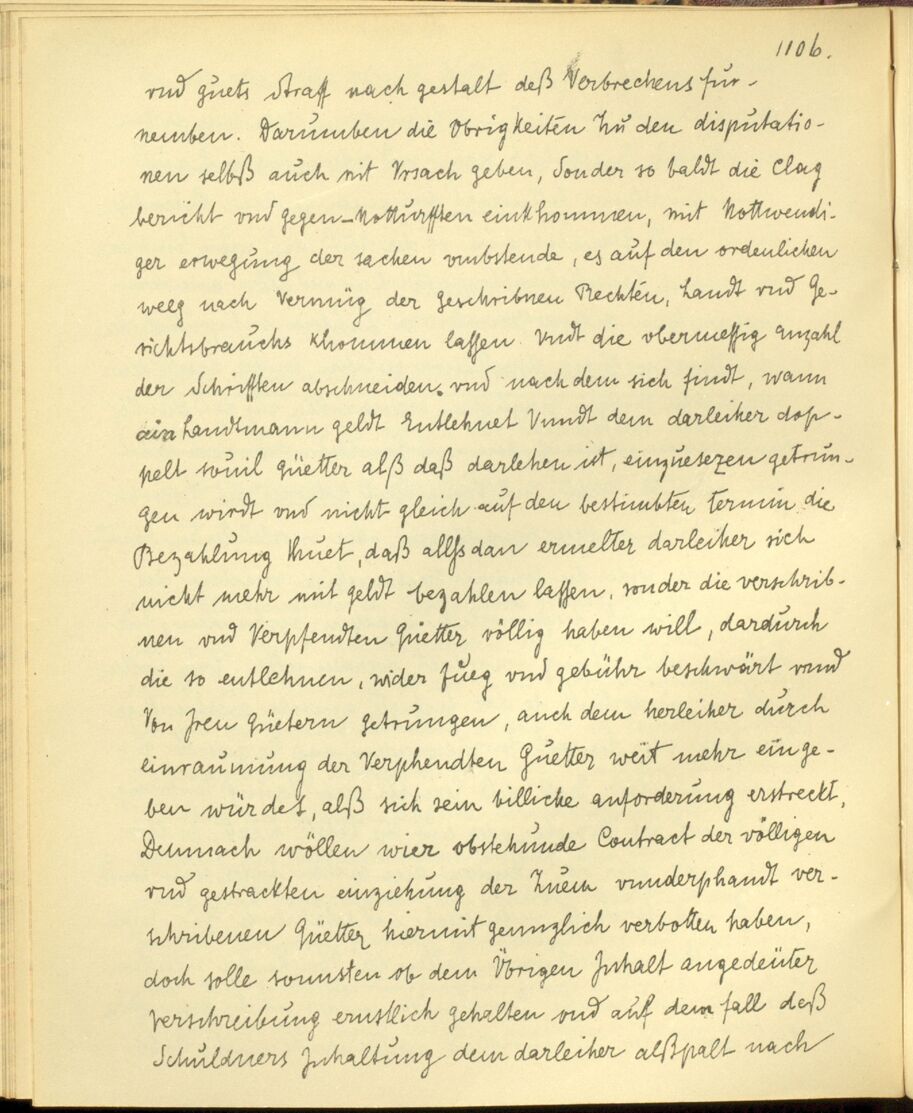 1106.
vnd guets Straff nach gestalt deß Verbrechens für-
nemben. Darumben die Obrigkeiten Zu den disputatio-
nen selbß auch nit Vrsach geben, Sonder so baldt die Clag
bericht vnd gegen-Notturfften einkhommen, mit Nottwendi-
ger erwegung der sachen vmbstende, es auf den ordenlichen
weeg nach Vermüg der geschribnen Rechten, Landt vnd Ge-
richtsbrauchs khommen lassen. Vndt die vbermessig anzahl
der Schrifften abschneiden. vnd nach dem sich findt, wann
ain Landtmann geldt Entlehnet Vnndt dem darleiher dop-
pelt souil güetter alß daß darlehen ist, einzuesezen getrun-
gen wirdt vnd nicht gleich auf den bestimbten Termin die
Bezahlung thuet, daß allßdan ermelter darleiher sich
nicht mehr mit geldt bezahlen lassen, sonder die verschrib-
nen vnd Verpfendten Güetter völlig haben will, dardurch
die so entlehnen, wider fueg vnd gebühr beschwärt vnnd
Von Jren Güetern getrungen, auch dem herleiher durch
einraumung der Verphendten Güetter weit mehr einge-
ben würdet, alß sich sein billiche anforderung erstreckt,
Demnach wöllen wier obstehunde Contract der völligen
vnd gestrackten einziehung der Zuem vnnderphandt ver-
schribenen Güetter hiermit genzlich verbotten haben,
doch solle sonnsten ob dem Übrigen Inhalt angedeüter
Verschreibung ernstlich gehalten vnd auf dem fall deß
Schuldners Inhaltung dem darleiher alßpalt nach